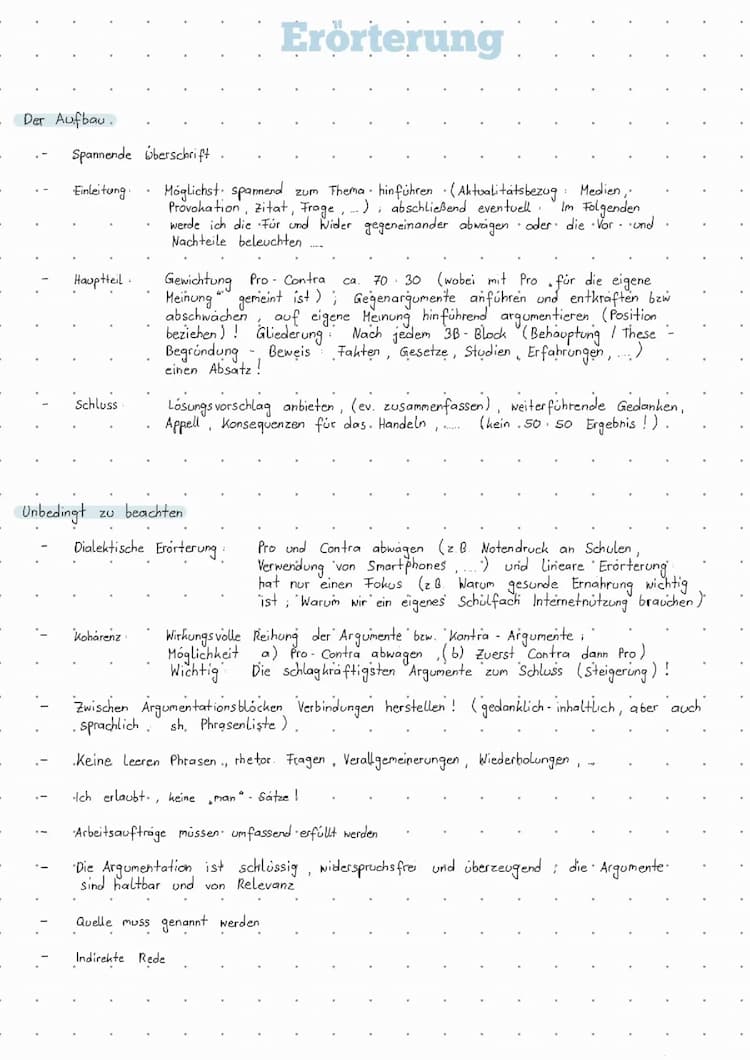 Erörterung
Der Aufbau.
- Spannende Überschrift
- Einleitung: Möglichst spannend zum Thema hinführen (Aktualitätsbezug: Medien,
Provokation, Zitat, Frage, ...); abschließend eventuell: Im Folgenden
werde ich die Für und Wider gegeneinander abwägen oder die Vor- und
Nachteile beleuchten ....
- Hauptteil: Gewichtung Pro - Contra ca. 70:30 (wobei mit Pro „für die eigene
Meinung" gemeint ist); Gegenargumente anführen und entkräften bzw
abschwächen, auf eigene Meinung hinführend argumentieren (Position
beziehen)! Gliederung: Nach jedem 3B-Block (Behauptung / These -
Begründung - Beweis: Fakten, Gesetze, Studien, Erfahrungen, ...)
einen Absatz!
- Schluss: Lösungsvorschlag anbieten, (ev. zusammenfassen), weiterführende Gedanken,
Appell, Konsequenzen für das Handeln, ..... (kein 50:50 Ergebnis!).
Unbedingt zu beachten
- Dialektische Erörterung: Pro und Contra abwägen (z.B. Notendruck an Schulen,
Verwendung von Smartphones, ...) und lineare Erörterung
hat nur einen Fokus (z.B. Warum gesunde Ernährung wichtig
ist; Warum wir ein eigenes Schulfach Internetnutzung brauchen)
- Kohärenz: Wirkungsvolle Reihung der Argumente bzw. Kontra-Argumente;
Möglichkeit a) Pro-Contra abwägen, (b) Zuerst Contra dann Pro)
Wichtig: Die schlagkräftigsten Argumente zum Schluss (Steigerung)!
- Zwischen Argumentationsblöcken Verbindungen herstellen! (gedanklich-inhaltlich, aber auch
sprachlich. sh. Phrasenliste)
- Keine Leeren Phrasen, rhetor. Fragen, Verallgemeinerungen, Wiederholungen, ...
- Ich erlaubt, keine „man"-Sätze!
- Arbeitsaufträge müssen umfassend erfüllt werden
- Die Argumentation ist schlüssig, widerspruchsfrei und überzeugend; die Argumente
sind haltbar und von Relevanz
- Quelle muss genannt werden
- Indirekte Rede